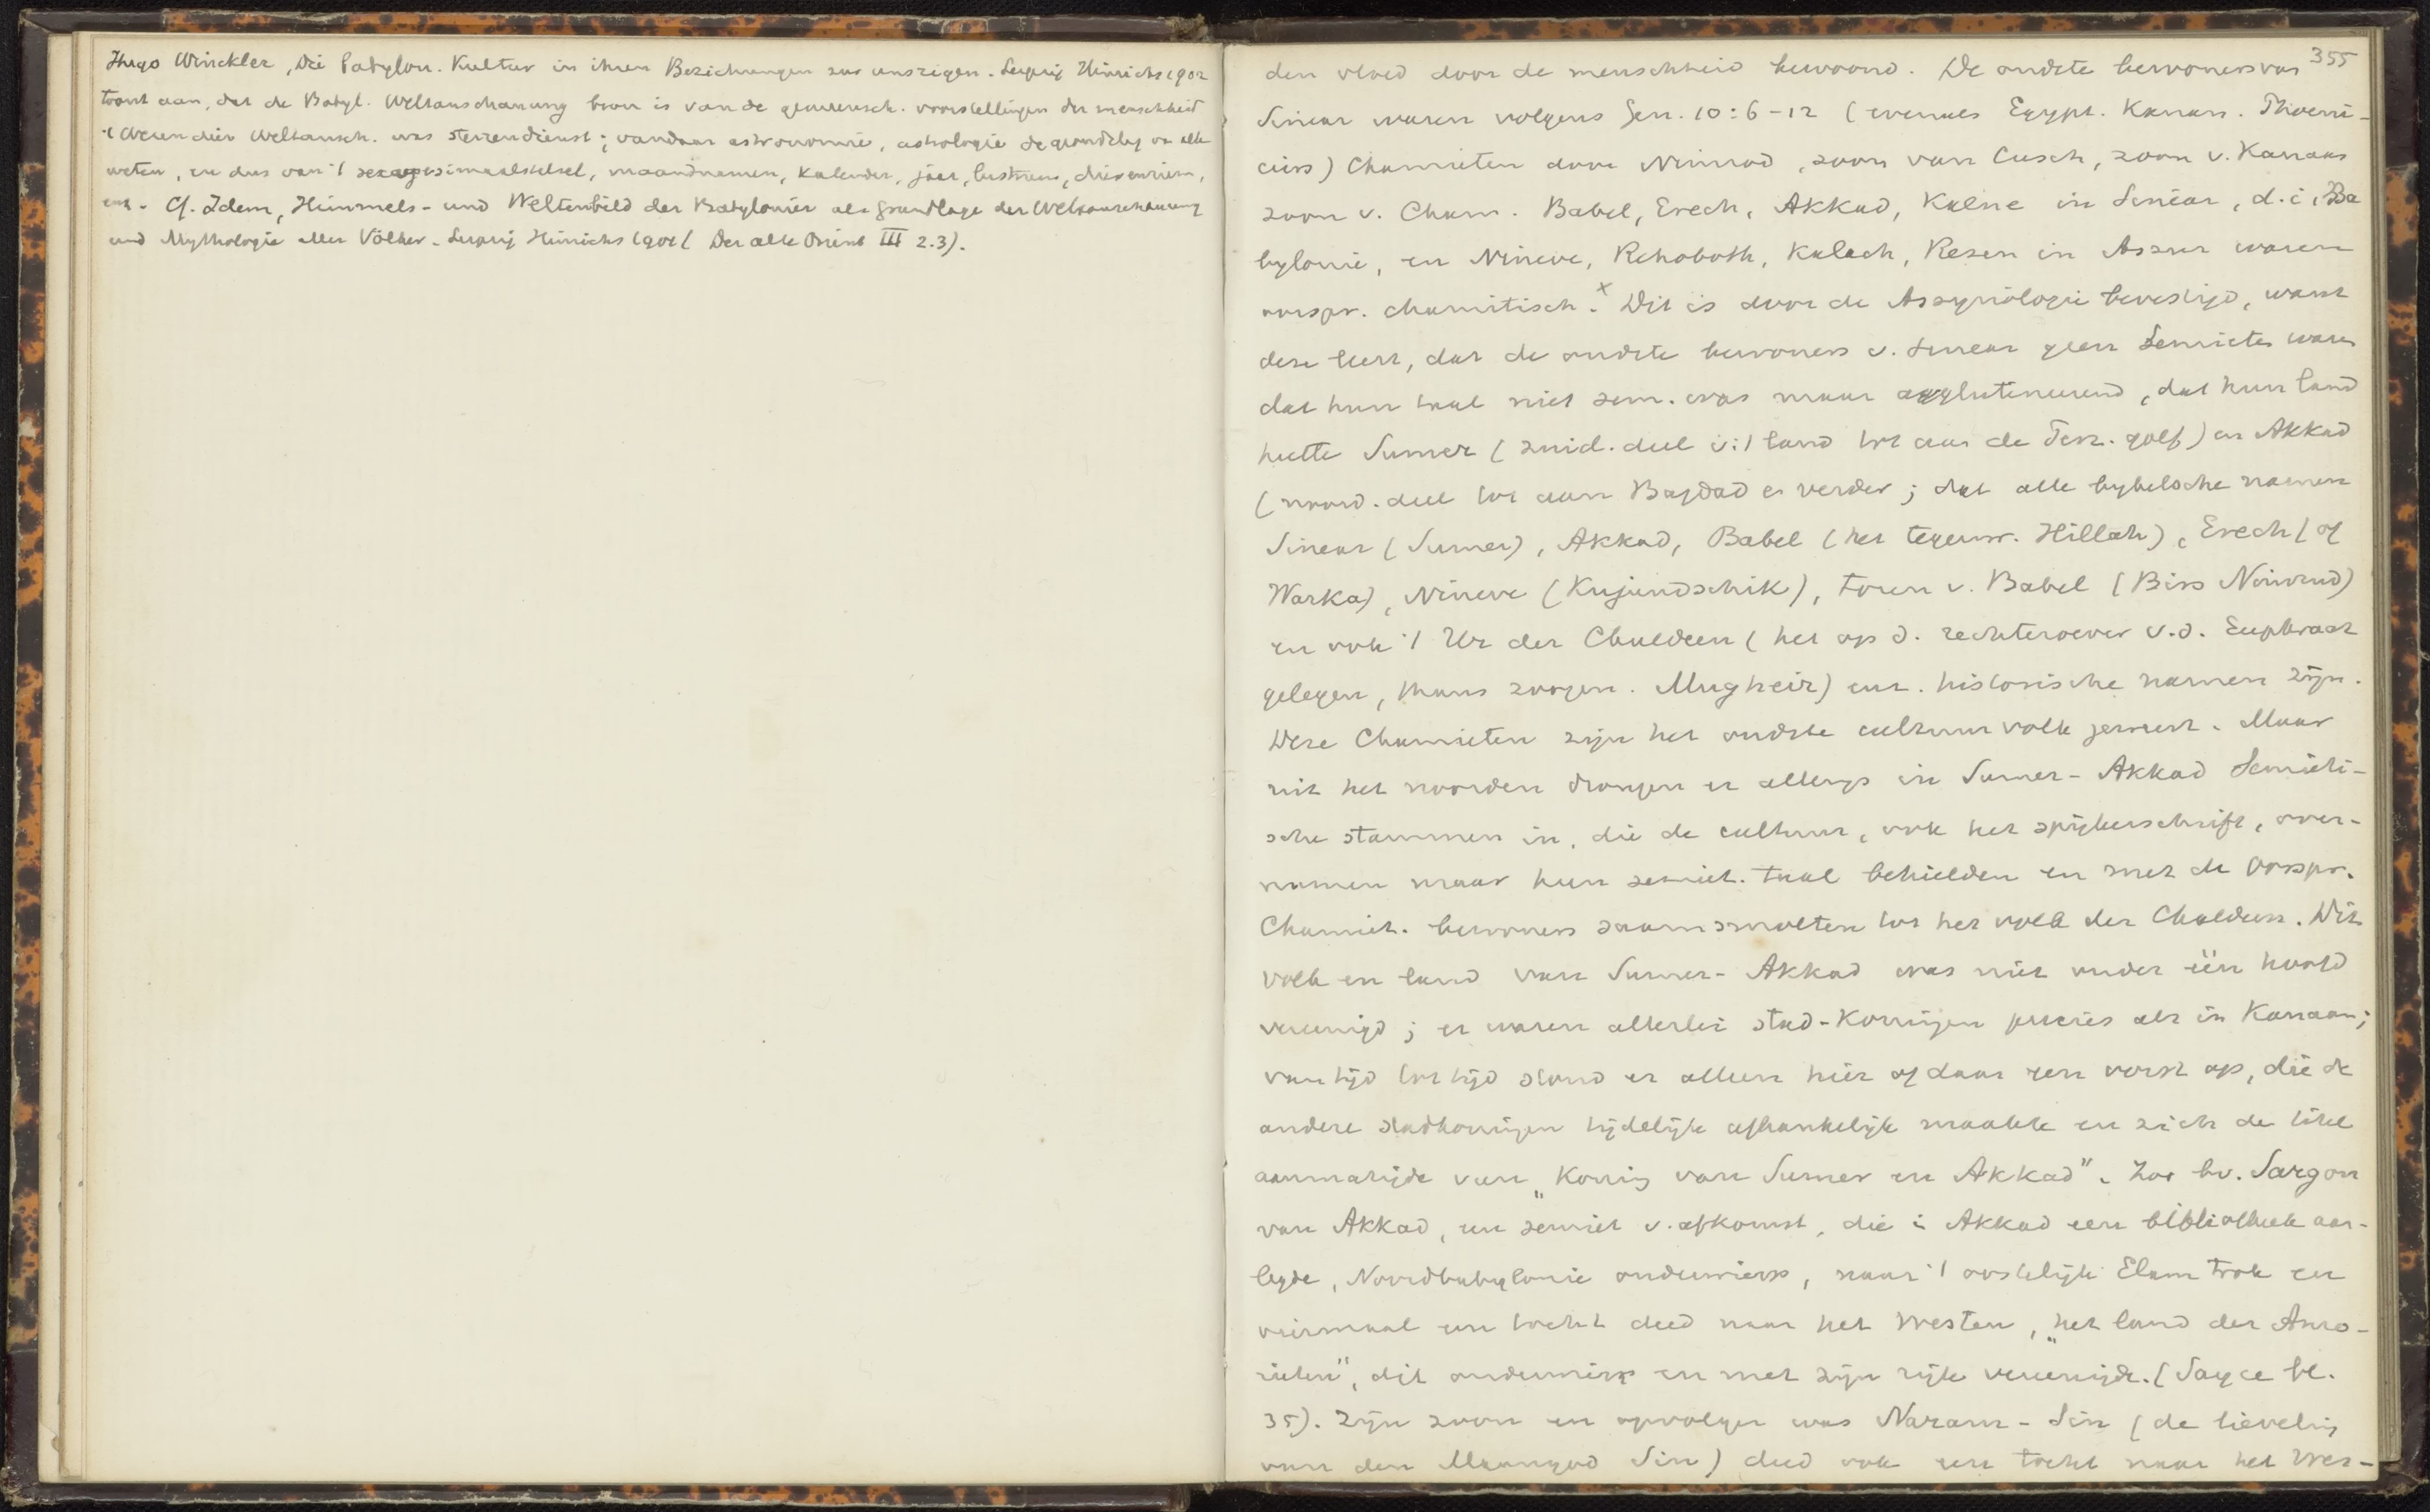 Hugo Winckler, Die babylon. Kultur in ihren Beziehungen zur unsrigen. Leipzig Hinrichs 1902
toont aan, dat de Babyl. Weltanschauung bron is van de gemeensch. voorstellingen der menschheid
't Wezen dier Weltansch. was sterrendienst; vandaar astronomie, astrologie de grondslag van alle
weten, en dus van 't sexagesimaalstelsel, maandnamen, Kalender, jaar, lustrum,
enz. Cf. Idem, Himmels- und Weltenbild der Babylonier als Grundlage der Weltanschauung
und Mythologie aller Völker. Leipzig Hinrichs 1901 (Der alte Orient III 2.3).
355
den vloed door de menschheid bewoond. De oudste bewoners van
Sinear waren volgens Gen. 10:6-12 (evenals Egypt. Kanaan. Phoeni-
ciërs) Chamieten door Nimrod, zoon van Cusch, zoon v. Kanaans
zoon v. Cham. Babel, Erech, Akkad, Kalne in Sinear, d.i. Ba
bylonie, en Nineve, Rehoboth, Kalach, Resen in Assur waren
oorspr. chamitisch.x Dit is door de Assyriologie bevestigd, want
deze leert, dat de oudste bewoners v. Sinear geen Semieten waren
dat hun taal niet sem. was maar agglutineerend, dat hun land
heette Sumer (zuid. deel v. 't land tot aan de Perz. golf) en Akkad
(noord. deel tot aan Bagdad en verder; dat alle bybelsche namen
Sinear (Sumer), Akkad, Babel (het tegenw. Hillah), Erech (of
Warka), Nineve (Kujundschik), toren v. Babel (Birs Nimrud)
en ook 't Ur der Chaldeen (het op d. rechteroever v.d. Euphraat
gelegen, thans zoogen. Mugheir) enz. historische namen zijn.
Deze Chamieten zijn het oudste cultuurvolk geweest. Maar
uit het noorden drongen er allengs in Sumer-Akkad Semieti-
sche stammen in, die de cultuur, ook het spijkerschrift, over-
namen maar hun semiet. taal behielden en met de oorspr.
Chamiet. bewoners saamsmolten tot het volk der Chaldeen. Dit
volk en land van Sumer-Akkad was niet onder één hoofd
vereenigd; er waren allerlei stad-Koningen precies als in Kanaan;
van tijd tot tijd stond er alleen hier of daar een vorst op, die de
andere stadkoningen tijdelijk afhankelijk maakte en zich de titel
aanmatigde van „Koning van Sumer en Akkad". Zoo bv. Sargon
van Akkad, een semiet v. afkomst, die in Akkad een bibliotheek aan-
legde, Noordbabylonie onderwierp, naar 't oostelijk Elam trok en
viermaal een tocht deed naar het Westen, „het land der Amo-
rieten", dit onderwierp en met zijn rijk vereenigde. (Sayce bl.
35). Zijn zoon en opvolger was Naram-Sin (de lieveling
van den Maangod Sin) deed ook een tocht naar het Wes-